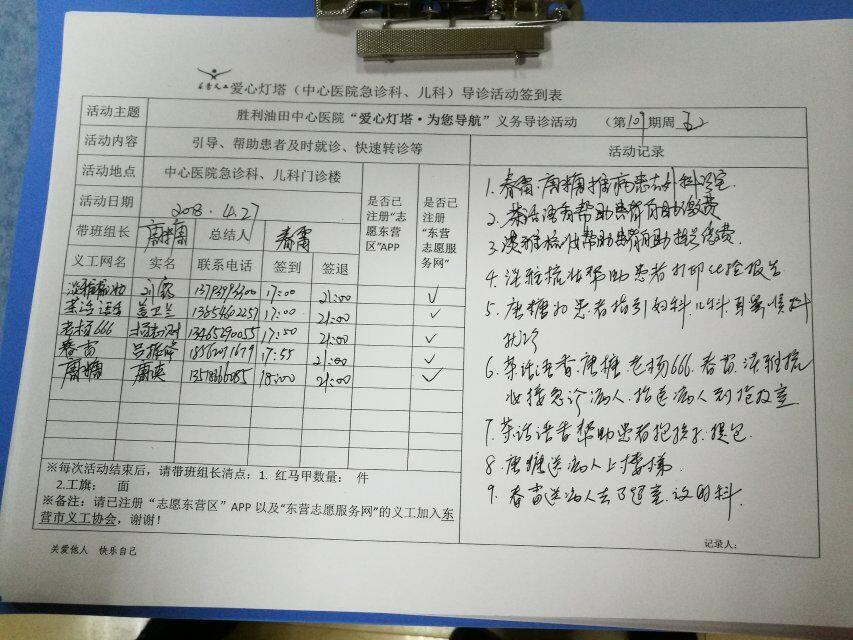 东营义工 爱心灯塔（中心医院急诊科、儿科）导诊活动签到表
活动主题 胜利油田中心医院“爱心灯塔·为您导航”义务导诊活动 （第109期周五）
活动内容 引导、帮助患者及时就诊、快速转诊等 活动记录
活动地点 中心医院急诊科、儿科门诊楼 是否已注册“志愿东营区”APP 是否已注册“东营志愿服务网”
活动日期 2018.4.27
带班组长 唐糖 总结人 春雷
义工网名 实名 联系电话 签到 签退
淡雅梳妆 17:00 21:00 ✓
茶话语香 盖卫兰 13654602257 17:00 21:00 ✓
老杨666 13465290055 17:50 21:00 ✓
春苗 17:55 21:00 ✓
唐糖 唐英 18:00 21:00 ✓
1. 春雷、唐糖推病患去外科诊室
2. 茶话语香帮助患者自助缴费
3. 淡雅梳妆帮助患者自助挂号缴费.
4. 淡雅梳妆帮助患者打印化验报告
5. 唐糖为患者指引妇科.儿科.耳鼻喉科
就诊
6. 茶话语香.唐糖.老杨666.春苗.淡雅梳
妆接急诊病人.抬送病人到抢救室
7. 茶话语香帮助患者抱孩子.提包.
8. 唐糖送病人上楼梯.
9. 春苗送病人去了超室.
※每次活动结束后，请带班组长清点：1. 红马甲数量： 件
2.工旗： 面
※备注：请已注册“志愿东营区”APP 以及“东营志愿服务网”的义工加入东
营市义工协会，谢谢！
记录人：
关爱他人 快乐自己